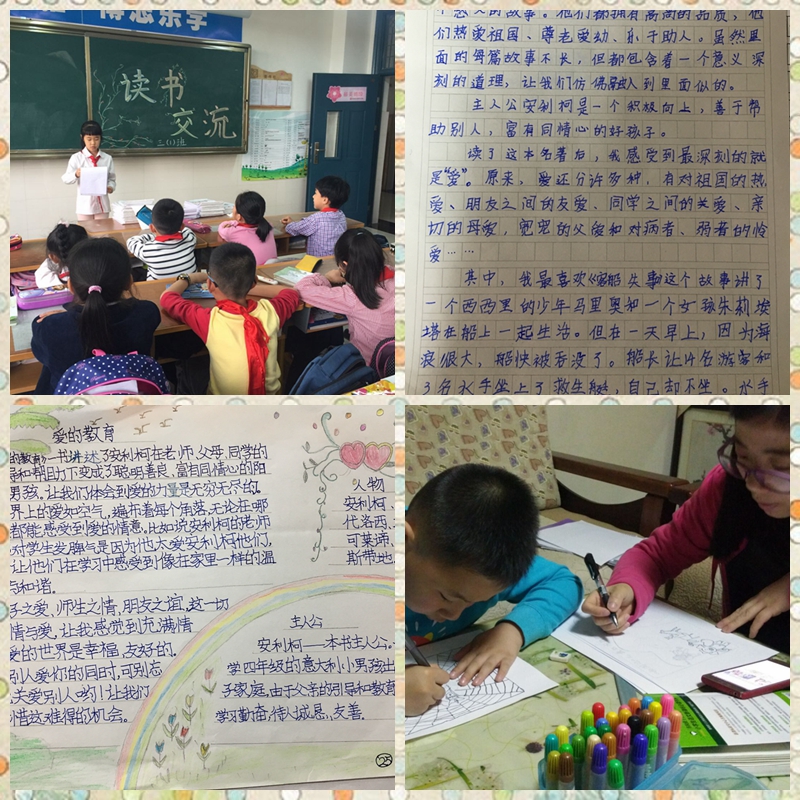 博思乐学
读书
交流
三(1)班
个感人的故事。他们都拥有高尚的品质，他
们热爱祖国、尊老爱幼、乐于助人。虽然里
面的每篇故事不长，但都包含着一个意义深
刻的道理，让我们仿佛融入到里面似的。
主人公安利柯是一个积极向上，善于帮
助别人，富有同情心的好孩子。
读了这本名著后，我感受到最深刻的就
是“爱”。原来，爱还分许多种，有对祖国的热
爱、朋友之间的友爱、同学之间的关爱、亲
切的母爱，宽宽的父爱和对病者、弱者的怜
爱……
其中，我最喜欢《 船失事》这个故事讲了
一个西西里的少年马里奥和一个女孩朱莉埃
塔在船上一起生活。但在一天早上，因为海
浪很大，船快被吞没了。船长让4名游客和
3名水手坐上了救生艇，自己却不坐。水手
爱的教育
的教育》一书讲述了安利柯在老师、父母、同学的
导和帮助下变成了聪明善良、富有同情心的阳
男孩，让我们体会到爱的力量是无穷无尽的。
界上的爱如空气，遍布着每个角落，无论在哪
都能感受到爱的情意。比如说安利柯的老师
对学生发脾气是因为他太爱安利柯他们，
让他们在学习中感受到像在家里一样的温
和谐。
子之爱、师生之情、朋友之谊，这一切
情与爱，让我感觉到充满情
爱的世界是幸福、友好的。
别人爱你的同时，可别忘
关爱别人哟！让我们
惜这难得的机会。
人物
安利柯、
代洛西、
可莱谛、
斯带地
主人公
安利柯——本书主人公。
学四年级的意大利小男孩出
子家庭，由于父亲的引导和教育
学习勤奋，待人诚恳、友善。
25